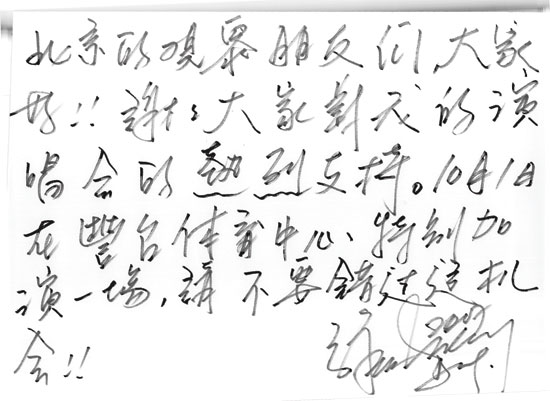 北京的观眾朋友们,大家
好!!謝謝大家對我的演
唱会的熱烈支持。10月1日
在豐台体育中心、特别加
演一場,請不要錯过這机
会!!